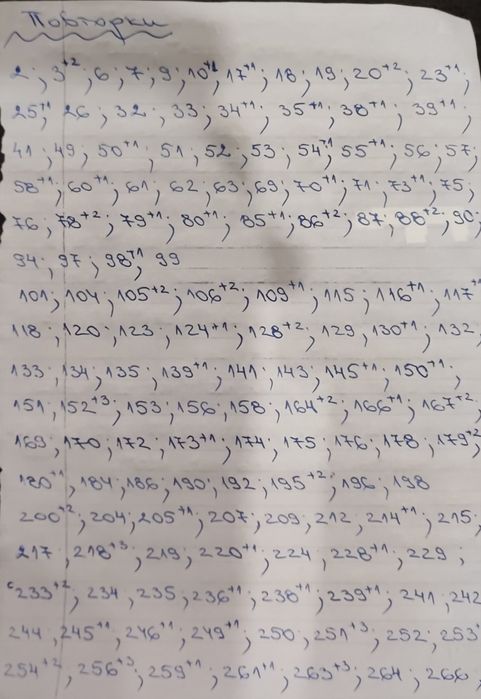 Повторки
2; 3⁺²; 6; 7; 9; 10⁺¹; 17⁺¹; 18; 19; 20⁺²; 23⁺¹;
25⁺¹; 26; 32; 33; 34⁺¹; 35⁺¹; 38⁺¹; 39⁺¹;
41; 49; 50⁺¹; 51; 52; 53; 54⁺¹; 55⁺¹; 56; 57;
58⁺¹; 60⁺¹; 61; 62; 63; 69; 70⁺¹; 71; 73⁺¹; 75;
76; 78⁺²; 79⁺¹; 80⁺¹; 85⁺¹; 86⁺²; 87; 88⁺²; 90;
94; 97; 98⁺¹; 99
101; 104; 105⁺²; 106⁺²; 109⁺¹; 115; 116⁺¹; 117⁺¹
118; 120; 123; 124⁺¹; 128⁺²; 129; 130⁺¹; 132;
133; 134; 135; 139⁺¹; 141; 143; 145⁺¹; 150⁺¹;
151; 152⁺³; 153; 156; 158; 164⁺²; 166⁺¹; 167⁺²;
169; 170; 172; 173⁺¹; 174; 175; 176; 178; 179⁺²
180⁺¹; 184; 186; 190; 192; 195⁺²; 196; 198
200⁺²; 204; 205⁺¹; 207; 209; 212; 214⁺¹; 215;
217; 218⁺³; 219; 220⁺¹; 224; 228⁺¹; 229;
233⁺²; 234; 235; 236⁺¹; 238⁺¹; 239⁺¹; 241; 242
244; 245⁺¹; 246⁺¹; 249⁺¹; 250; 251⁺³; 252; 253
254⁺²; 256⁺³; 259⁺¹; 261⁺¹; 263⁺³; 264; 266;